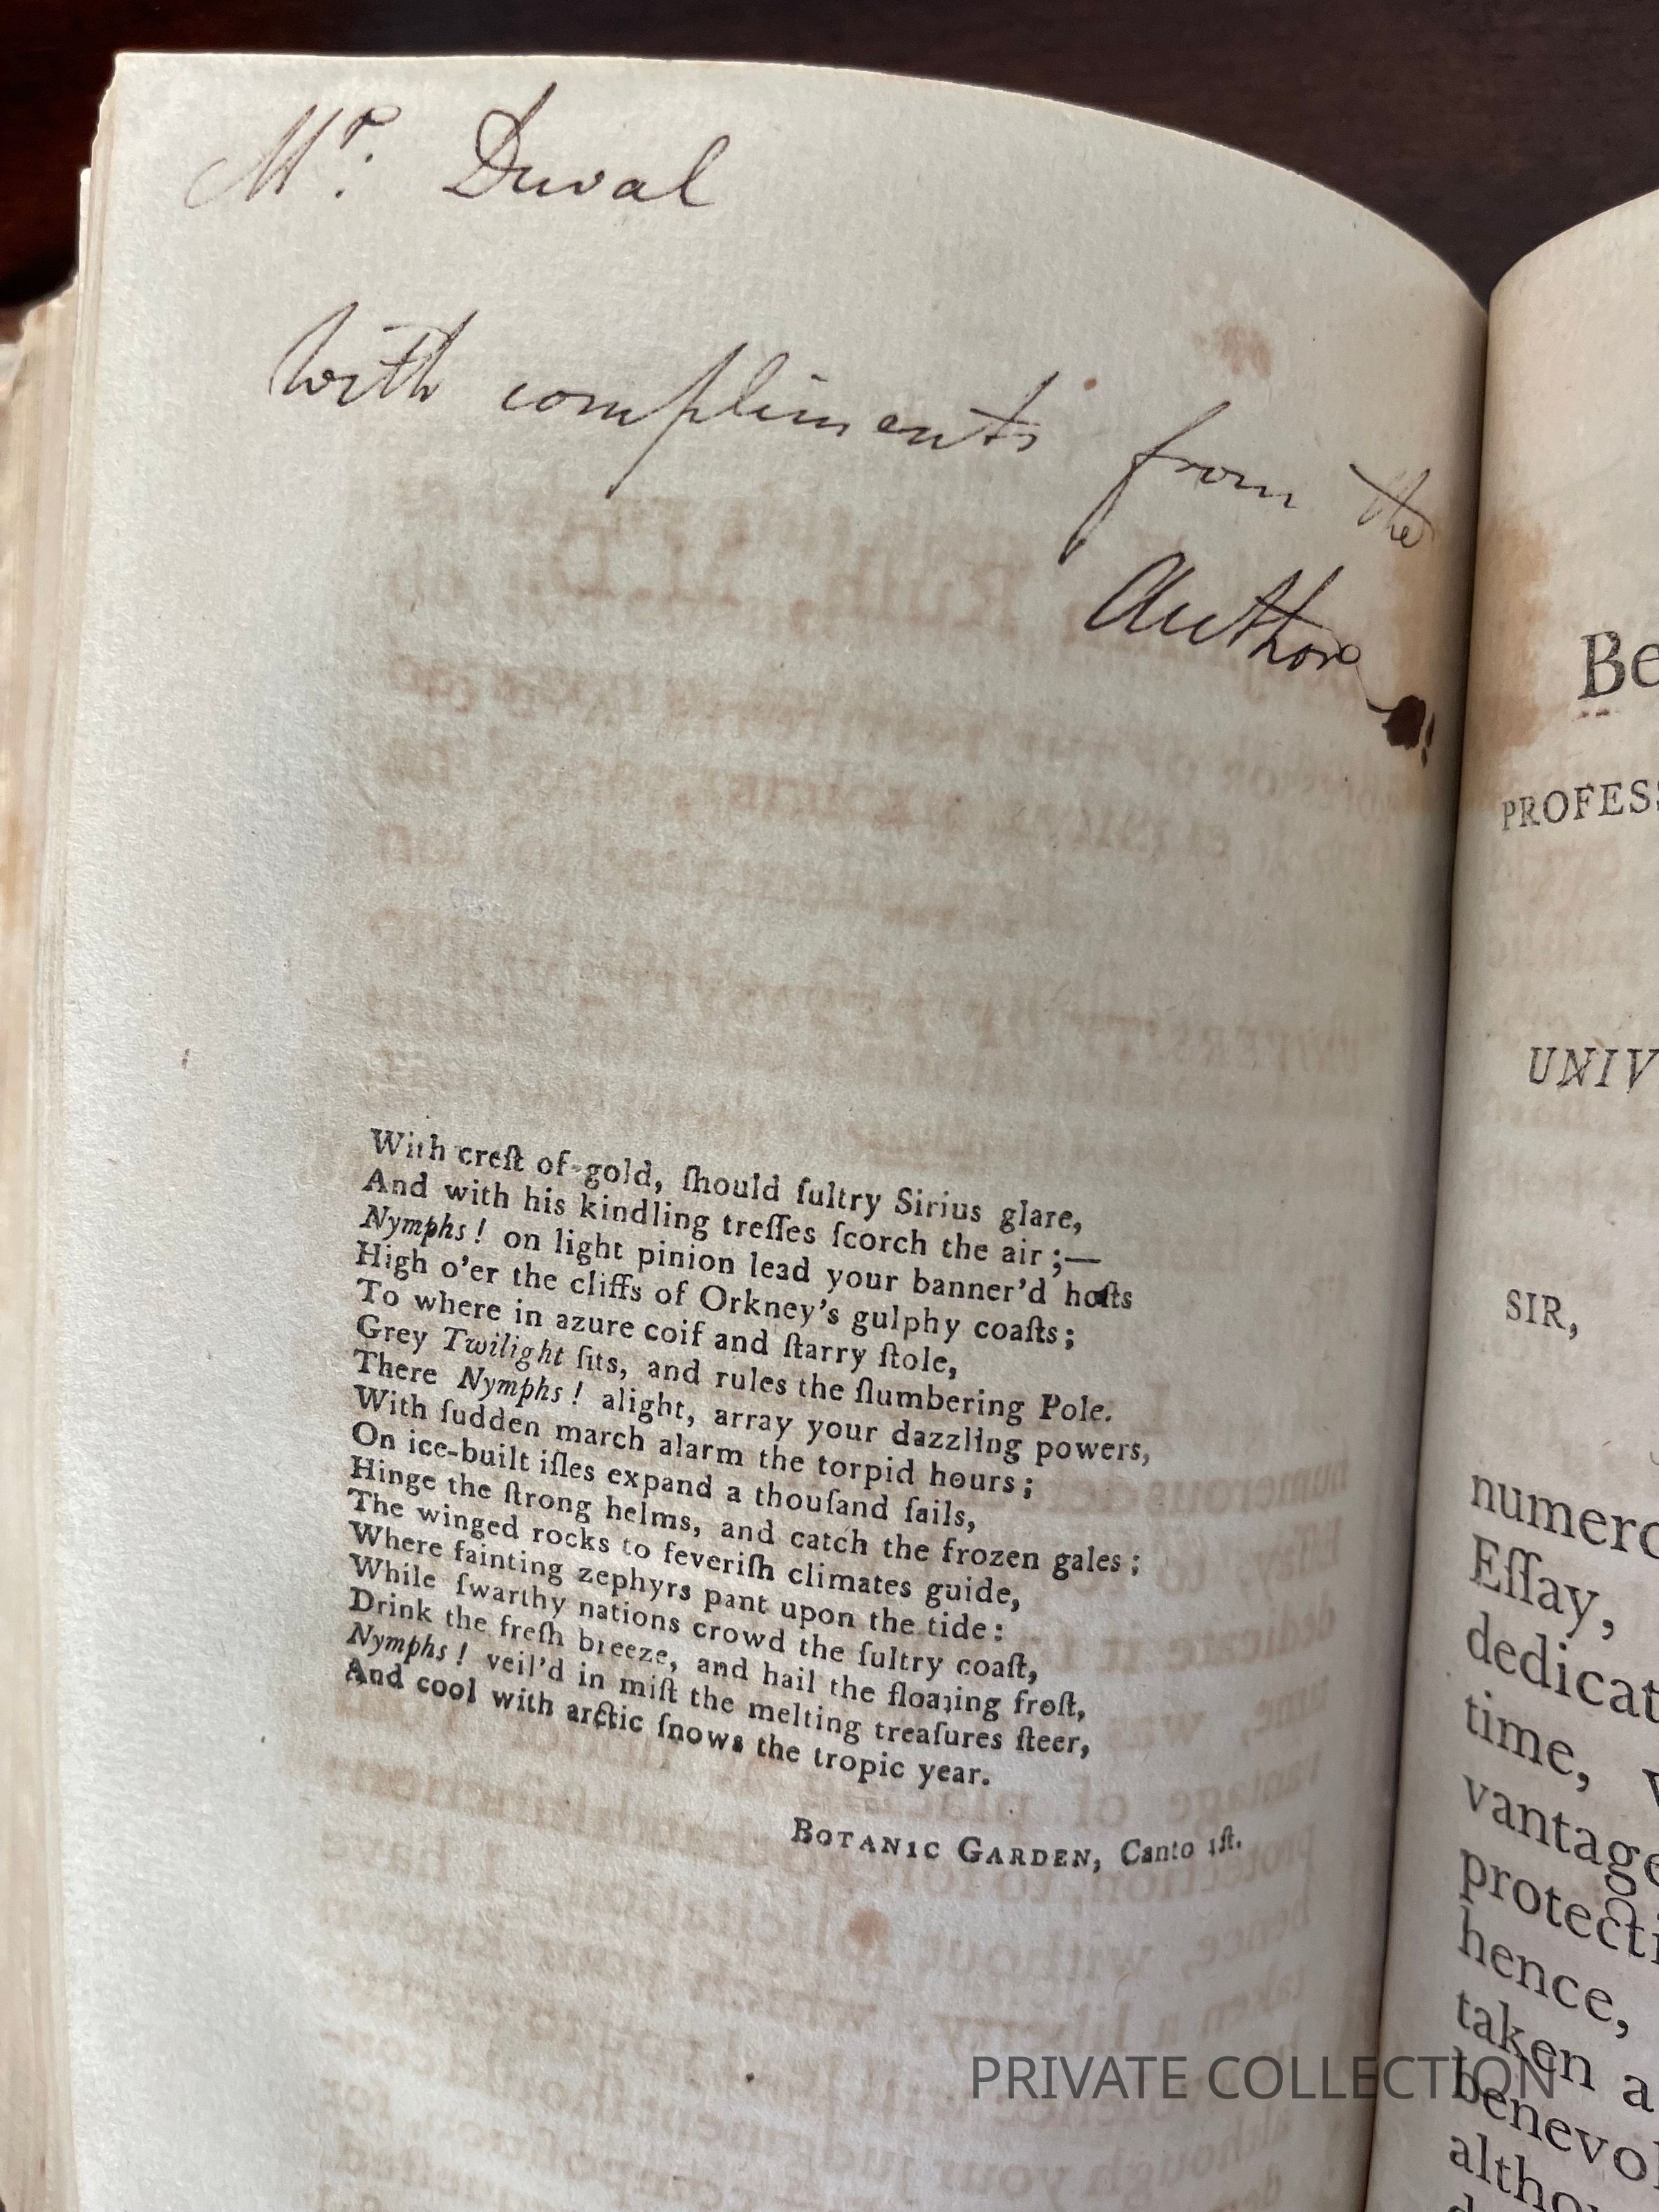 Mr. Duval
With compliments from the
Author
With creſt of gold, ſhould ſultry Sirius glare,
And with his kindling treſſes ſcorch the air;—
Nymphs! on light pinion lead your banner'd hoſts
High o'er the cliffs of Orkney's gulphy coaſts;
To where in azure coif and ſtarry ſtole,
Grey Twilight ſits, and rules the ſlumbering Pole.
There Nymphs! alight, array your dazzling powers,
With ſudden march alarm the torpid hours;
On ice-built iſles expand a thouſand ſails,
Hinge the ſtrong helms, and catch the frozen gales;
The winged rocks to feveriſh climates guide,
Where fainting zephyrs pant upon the tide:
While ſwarthy nations crowd the ſultry coaſt,
Drink the freſh breeze, and hail the floating froſt,
Nymphs! veil'd in miſt the melting treaſures ſteer,
And cool with arctic ſnows the tropic year.
BOTANIC GARDEN, Canto 1ſt.
Be
PROFESS
UNIV
SIR,
numero
Eſſay,
dedicat
time,
vantage
protecti
hence,
taken a
benevol
altho
PRIVATE COLLECTION